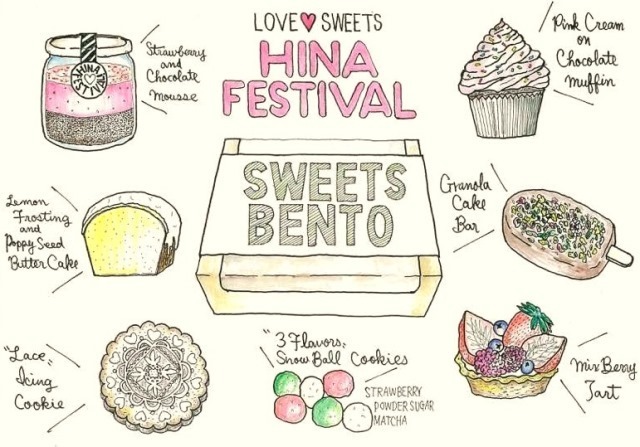 LOVE♥SWEETS
HINA
FESTIVAL
Strawberry
and
Chocolate
Mousse
Pink Cream
on
Chocolate
Muffin
SWEETS
BENTO
Lemon
Frosting
and
Poppy Seed
Butter Cake
Granola
Cake
Bar
"Lace"
Icing
Cookie
"3 Flavors"
Snow Ball Cookies
STRAWBERRY
POWDER SUGAR
MATCHA
Mix Berry
Tart